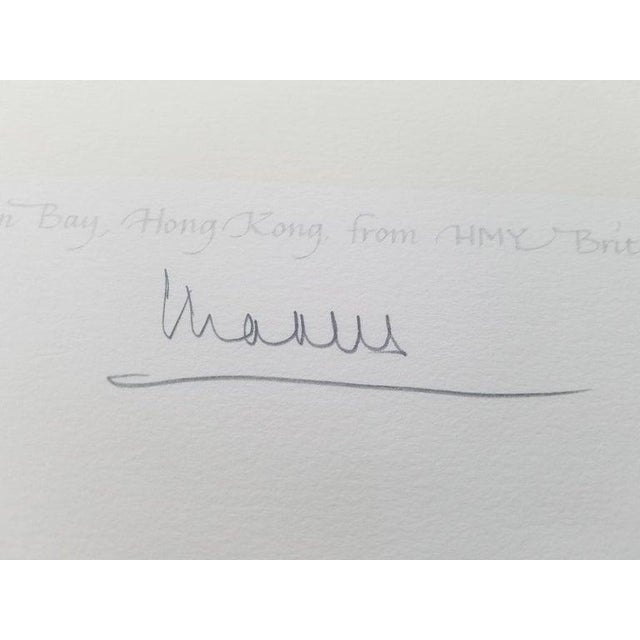 n Bay, Hong Kong from HMY Brit
Charles